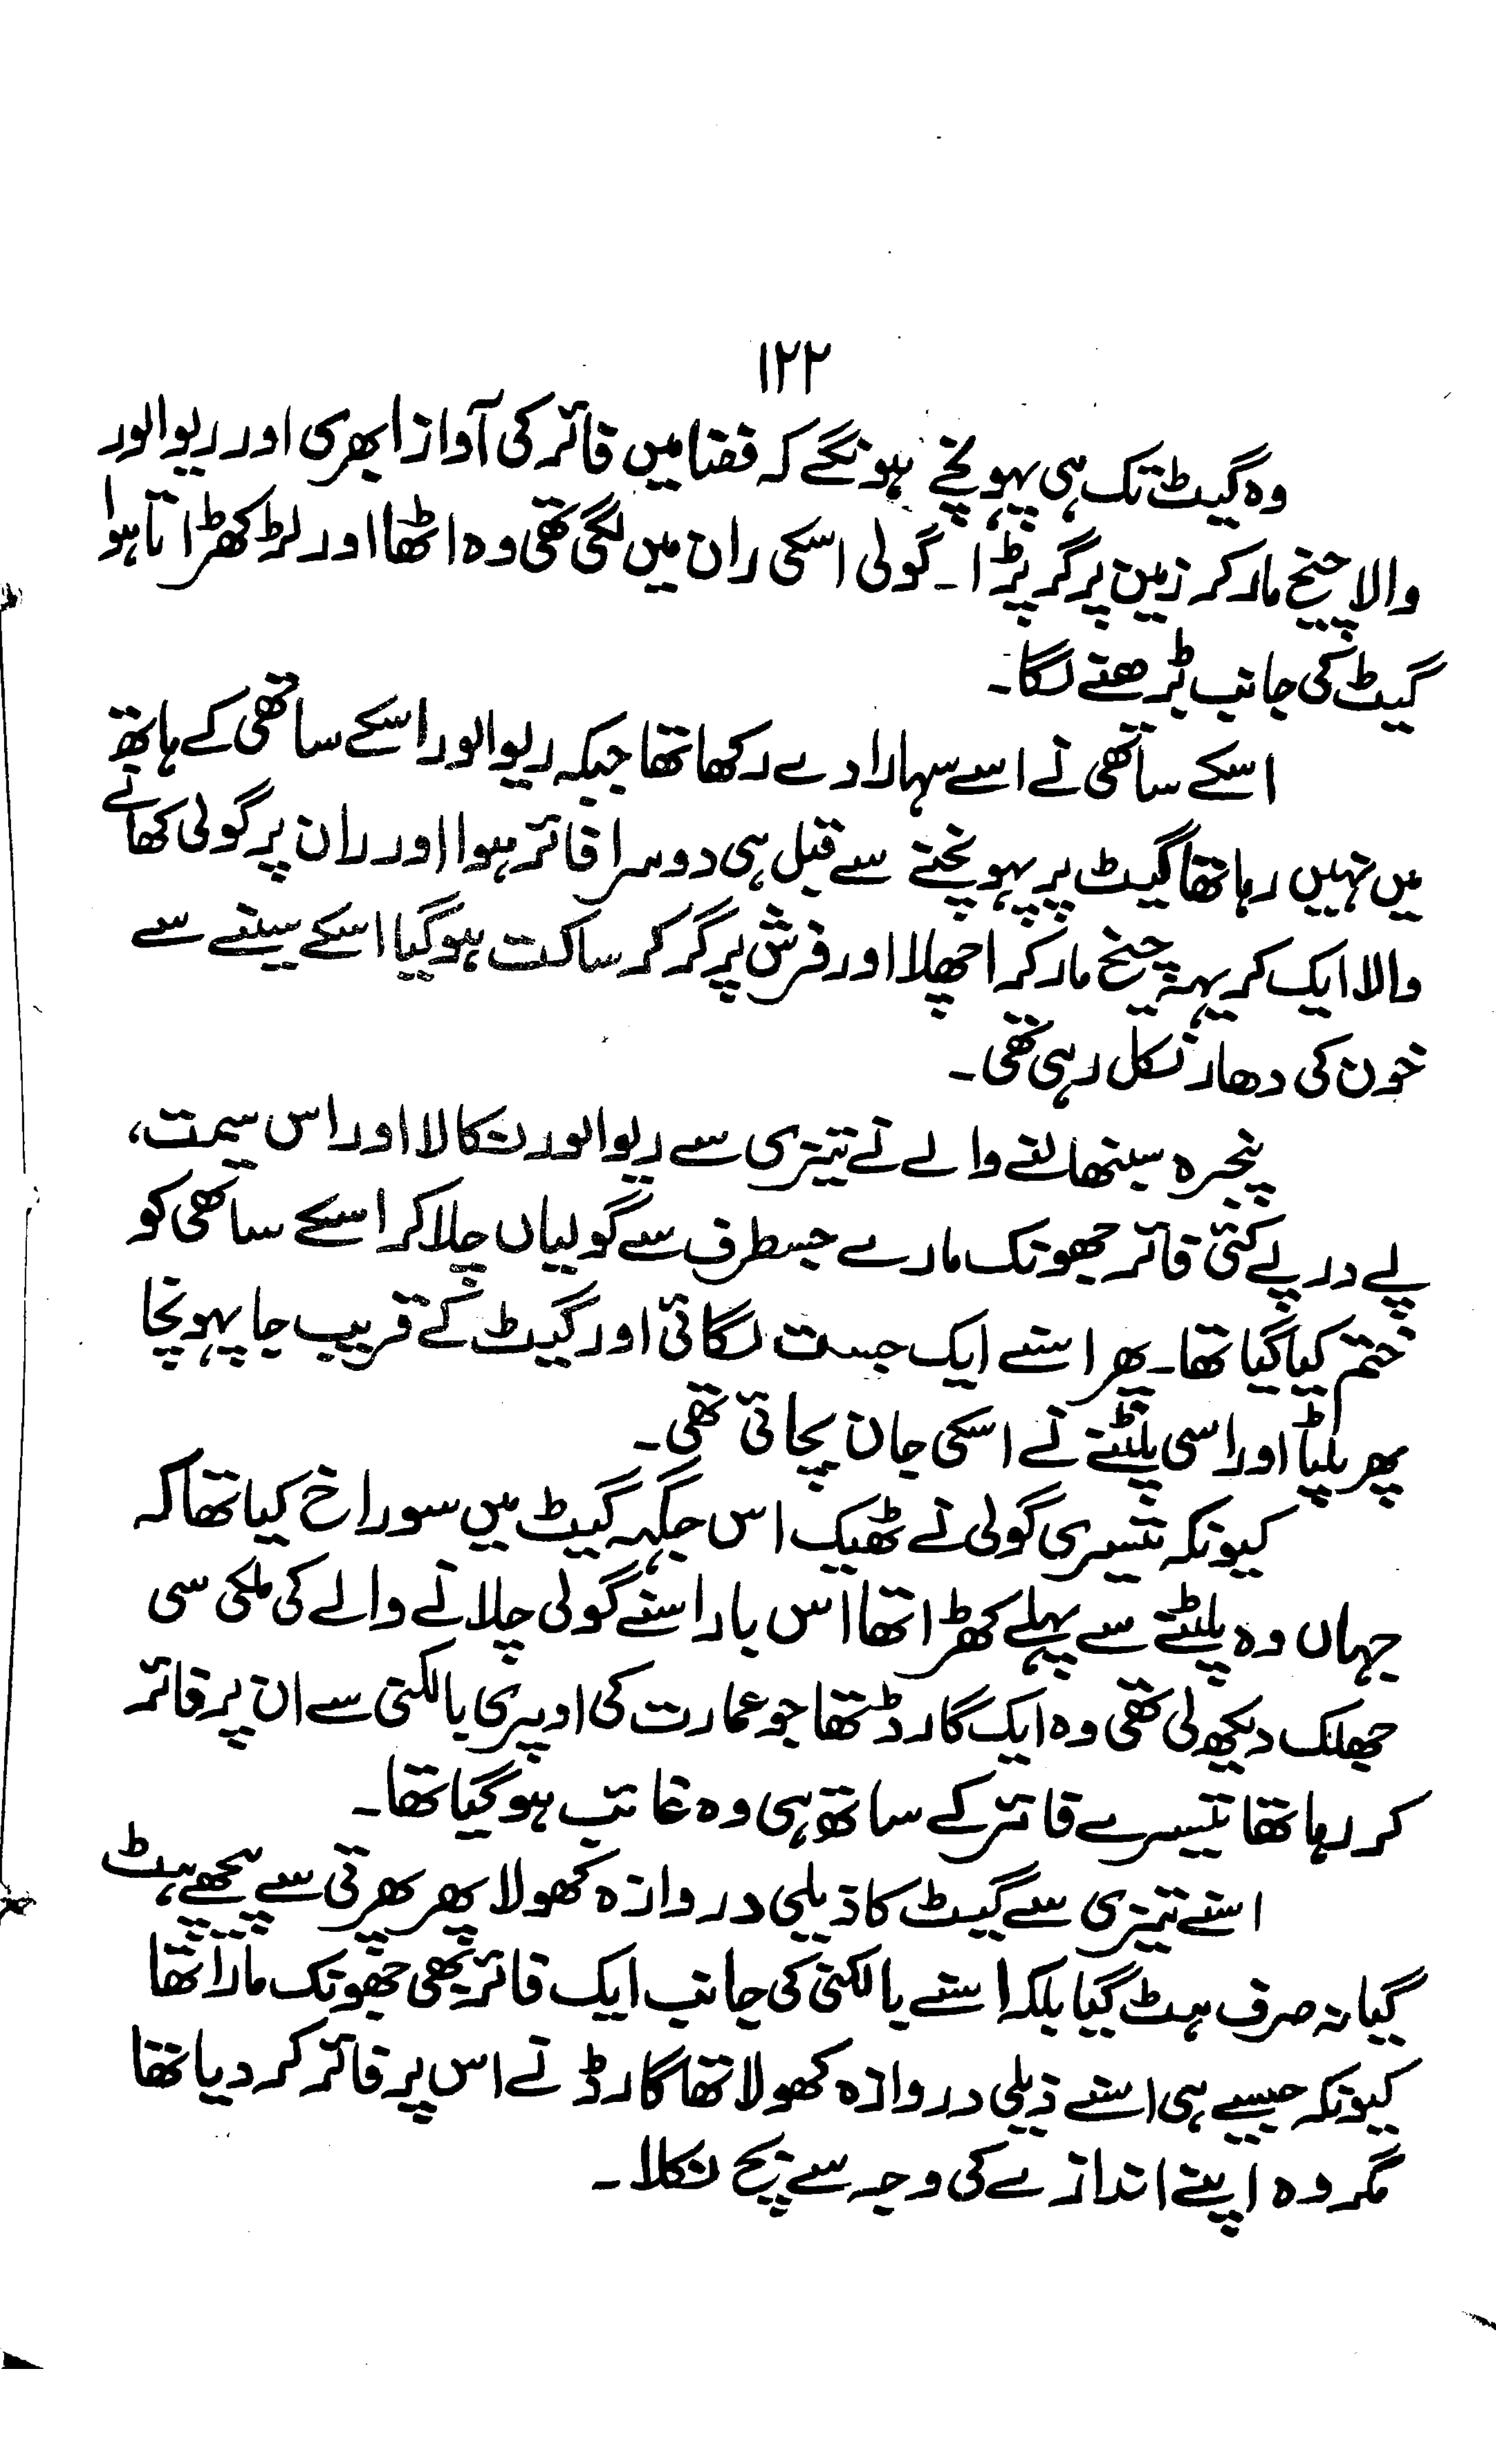 ۱۲۲
وہ گیٹ تک ہی پہونچے ہونگے کہ فضا میں فائر کی آواز ابھری اور ریوالور
والا چیخ مار کر زمین پر گر پڑا۔ گولی اسکی ران میں لگی تھی وہ اٹھا اور لڑکھڑاتا ہوا
گیٹ کی جانب بڑھنے لگا۔
اسکے ساتھی نے اسے سہارا دے رکھا تھا جبکہ ریوالور اسکے ساتھی کے ہاتھ
میں نہیں رہا تھا گیٹ پر پہونچنے سے قبل ہی دوسرا فائر ہوا اور ران پر گولی کھانے
والا ایک کریہہ چیخ مار کر اچھلا اور فرش پر گر کر ساکت ہو گیا اسکے سینے سے
خون کی دھار نکل رہی تھی۔
پنجرہ سنبھالنے والے نے تیزی سے ریوالور نکالا اور اس سیمت،
پے در پے کئی فائر جھونک مارے جسطرف سے گولیاں چلا کر اسکے ساتھی کو
ختم کیا گیا تھا۔ پھر اسنے ایک جست لگائی اور گیٹ کے قریب جا پہونچا
پھر پلٹا اور اسی پلٹنے نے اسکی جان بچائی تھی۔
کیونکہ تیسری گولی نے ٹھیک اس جگہہ گیٹ میں سوراخ کیا تھا کہ
جہاں وہ پلٹنے سے پہلے کھڑا تھا اس بار اسنے گولی چلانے والے کی ہلکی سی
جھلک دیکھ لی تھی وہ ایک گارڈ تھا جو عمارت کی اوپری بالکنی سے ان پر فائر
کر رہا تھا تیسرے فائر کے ساتھ ہی وہ غائب ہو گیا تھا۔
اسنے تیزی سے گیٹ کا ذیلی دروازہ کھولا پھر پھرتی سے پیچھے ہٹ
گیا نہ صرف ہٹ گیا بلکہ اسنے بالکنی کی جانب ایک فائر بھی جھونک مارا تھا
کیونکہ جیسے ہی اسنے ذیلی دروازہ کھولا تھا گارڈ نے اس پر فائر کر دیا تھا
مگر وہ اپنے اندازے کی وجہ سے بچ نکلا۔